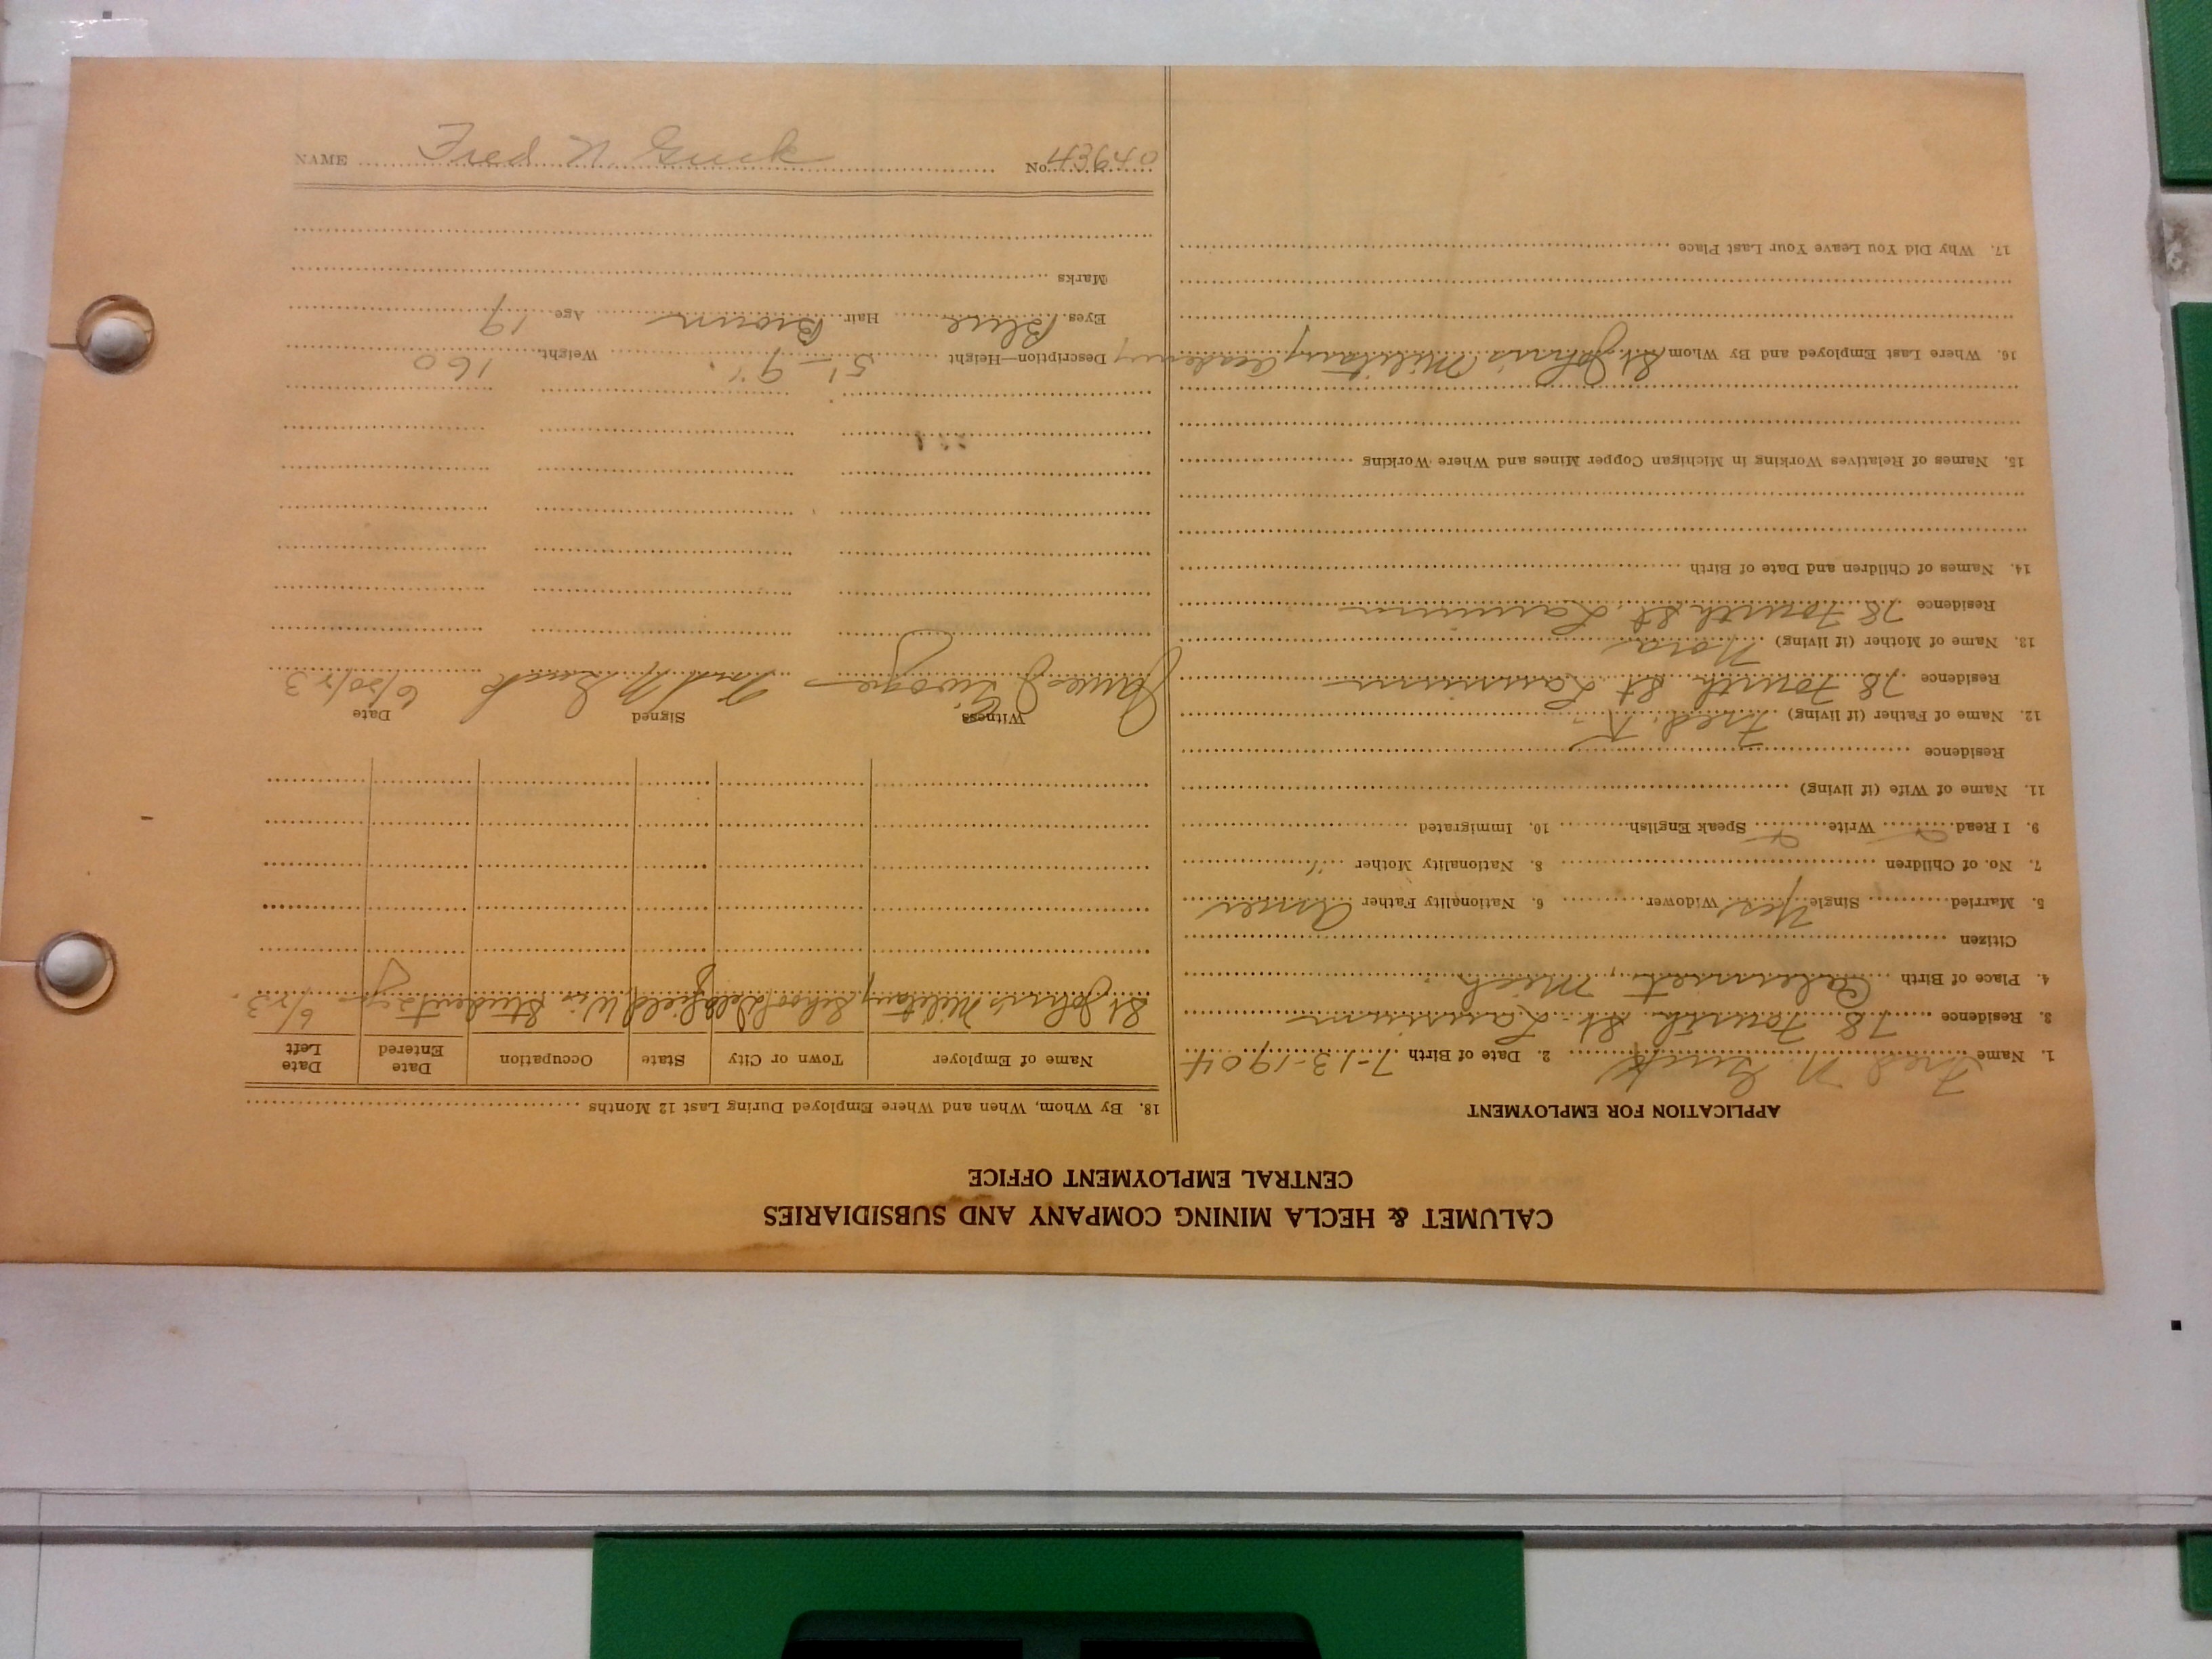 CALUMET & HECLA MINING COMPANY AND SUBSIDIARIES
CENTRAL EMPLOYMENT OFFICE
APPLICATION FOR EMPLOYMENT
1. Name Fred N. Guck 2. Date of Birth 7-13-1904
3. Residence 78 Fourth St. Laurium
4. Place of Birth Calumet, Mich
Citizen
5. Married Single Yes Widower 6. Nationality Father Amer
7. No. of Children 8. Nationality Mother "
9. I Read Write Speak English 10. Immigrated
11. Name of Wife (if living)
Residence
12. Name of Father (if living) Fred. K.
Residence 78 Fourth St Laurium
13. Name of Mother (if living) Nora
Residence 78 Fourth St. Laurium
14. Names of Children and Date of Birth
15. Names of Relatives Working in Michigan Copper Mines and Where Working
16. Where Last Employed and By Whom St. John's Military Academy
17. Why Did You Leave Your Last Place
18. By Whom, When and Where Employed During Last 12 Months
Name of Employer Town or City State Occupation Date Entered Date Left
St John's Military School Delafield Wis Student 6/23
Witness Signed Date
James J Fred N. Guck 6/20/23
Description—Height 5'-9" Weight 160
Eyes Blue Hair Brown Age 19
Marks
NAME Fred N. Guck No. 43640